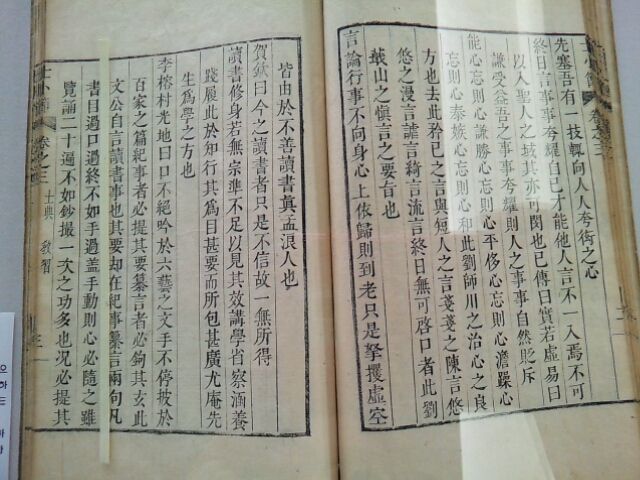 先塞吾有一技輒向人人夸衒之心
終日言事事夸耀自己才能他人言不一入焉不可
以人聖人之域其亦可閔也已傳曰實若虛易曰
謙受益吾之事事夸耀則人之事事自然貶斥
能心忘則謙勝心忘則心平侈心忘則心澹躁心
忘則心泰嫉心忘則心和此劉師川之治心之良
方也去此矜己之言與短人之言戔戔之陳言悠
悠之漫言謔言綺言流言終日無可啓口者此劉
蕺山之愼言之要旨也
言論行事不向身心上依歸則到老只是拏攫虛空
皆由於不善讀書眞孟浪人也
賀欽曰今之讀書者只是不信故一無所得
讀書修身若無宗準不足以見其效講學省察涵養
踐履此於知行其爲目甚要而所包甚廣尤庵先
生爲學之方也
李榕村光地曰口不絕吟於六藝之文手不停披於
百家之篇紀事者必提其要纂言者必鉤其玄此
文公自言讀書事也其要却在紀事纂言兩句凡
書目過口過終不如手過盖手動則心必隨之雖
覽誦二十遍不如鈔撮一次之功多也況必提其
士小節 卷之三 士典 敎習